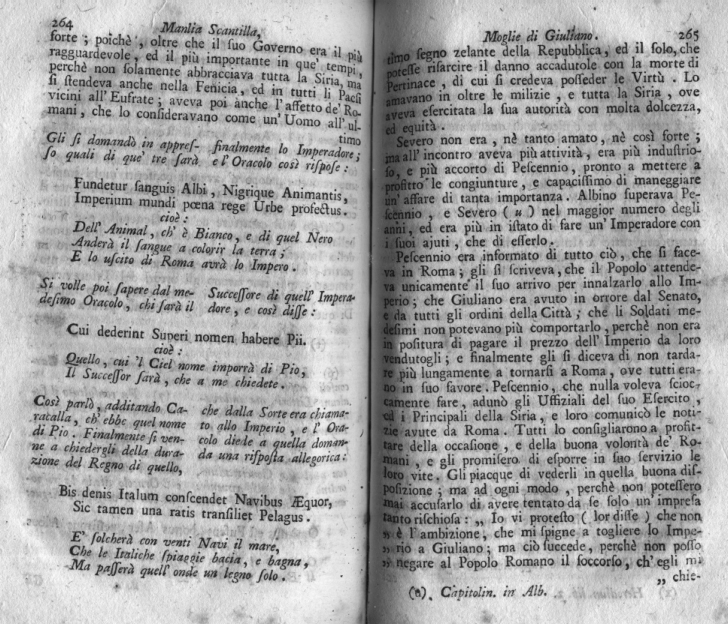 264 Manlia Scantilla,
forte ; poichè , oltre che il ſuo Governo era il più
ragguardevole , ed il più importante in que' tempi,
perchè non ſolamente abbracciava tutta la Siria, ma
ſi ſtendeva anche nella Fenicia, ed in tutti li Paeſi
vicini all'Eufrate ; aveva poi anche l'affetto de' Ro-
mani , che lo conſideravano come un'Uomo all'ul-
timo
Gli ſi domandò in appreſ-
ſo quali di que' tre ſarà
finalmente lo Imperadore ;
e l'Oracolo così riſpoſe :
Fundetur ſanguis Albi , Nigrique Animantis,
Imperium mundi pœna rege Urbe profectus.
cioè :
Dell' Animal, ch' è Bianco, e di quel Nero
Anderà il ſangue a colorir la terra ;
E lo uſcito di Roma avrà lo Impero .
Si volle poi ſapere dal me-
deſimo Oracolo, chi ſarà il
Succeſſore di quell' Impera-
dore , e così diſſe :
Cui dederint Superi nomen habere Pii.
cioè :
Quello, cui 'l Ciel nome imporrà di Pio,
Il Succeſſor ſarà, che a me chiedete.
Così parlò, additando Ca-
racalla, ch'ebbe quel nome
di Pio . Finalmente ſi ven-
ne a chiedergli della dura-
zione del Regno di quello,
che dalla Sorte era chiama-
to allo Imperio , e l' Ora-
colo diede a quella doman-
da una riſpoſta allegorica :
Bis denis Italum conſcendet Navibus Æquor,
Sic tamen una ratis tranſiliet Pelagus.
E' ſolcherà con venti Navi il mare,
Che le Italiche ſpiaggie bacia, e bagna,
Ma paſſerà quell' onde un legno ſolo .
Moglie di Giuliano. 265
timo ſegno zelante della Repubblica, ed il ſolo, che
poteſſe riſarcire il danno accadutole con la morte di
Pertinace , di cui ſi credeva poſſeder le Virtù . Lo
amavano in oltre le milizie , e tutta la Siria , ove
aveva eſercitata la ſua autorità con molta dolcezza,
ed equità .
Severo non era , nè tanto amato, nè così forte ;
ma all' incontro aveva più attività, era più induſtrio-
ſo, e più accorto di Peſcennio, pronto a mettere a
profitto le congiunture, e capaciſſimo di maneggiare
un' affare di tanta importanza. Albino ſuperava Pe-
ſcennio , e Severo ( u ) nel maggior numero degli
anni, ed era più in iſtato di fare un'Imperadore con
i ſuoi ajuti , che di eſſerlo .
Peſcennio era informato di tutto ciò, che ſi face-
va in Roma ; gli ſi ſcriveva, che il Popolo attende-
va unicamente il ſuo arrivo per innalzarlo allo Im-
perio ; che Giuliano era avuto in orrore dal Senato,
e da tutti gli ordini della Città ; che li Soldati me-
deſimi non potevano più comportarlo, perchè non era
in poſitura di pagare il prezzo dell' Imperio da loro
vendutogli ; e finalmente gli ſi diceva di non tarda-
re più lungamente a tornarſi a Roma, ove tutti era-
no in ſuo favore. Peſcennio, che nulla voleva ſcioc-
camente fare, adunò gli Uffiziali del ſuo Eſercito ,
ed i Principali della Siria , e loro comunicò le noti-
zie avute da Roma. Tutti lo conſigliarono a profit-
tare della occaſione , e della buona volontà de' Ro-
mani , e gli promiſero di eſporre in ſuo ſervizio le
loro vite. Gli piacque di vederli in quella buona diſ-
poſizione ; ma ad ogni modo , perchè non poteſſero
mai accuſarlo di avere tentato da ſe ſolo un' impreſa
tanto riſchioſa : „ Io vi proteſto ( lor diſſe ) che non
„ è l'ambizione, che mi ſpigne a togliere lo Impe-
„ rio a Giuliano ; ma ciò ſuccede, perchè non poſſo
„ negare al Popolo Romano il ſoccorſo, ch' egli mi
„ chie-
(u) Capitolin. in Alb.